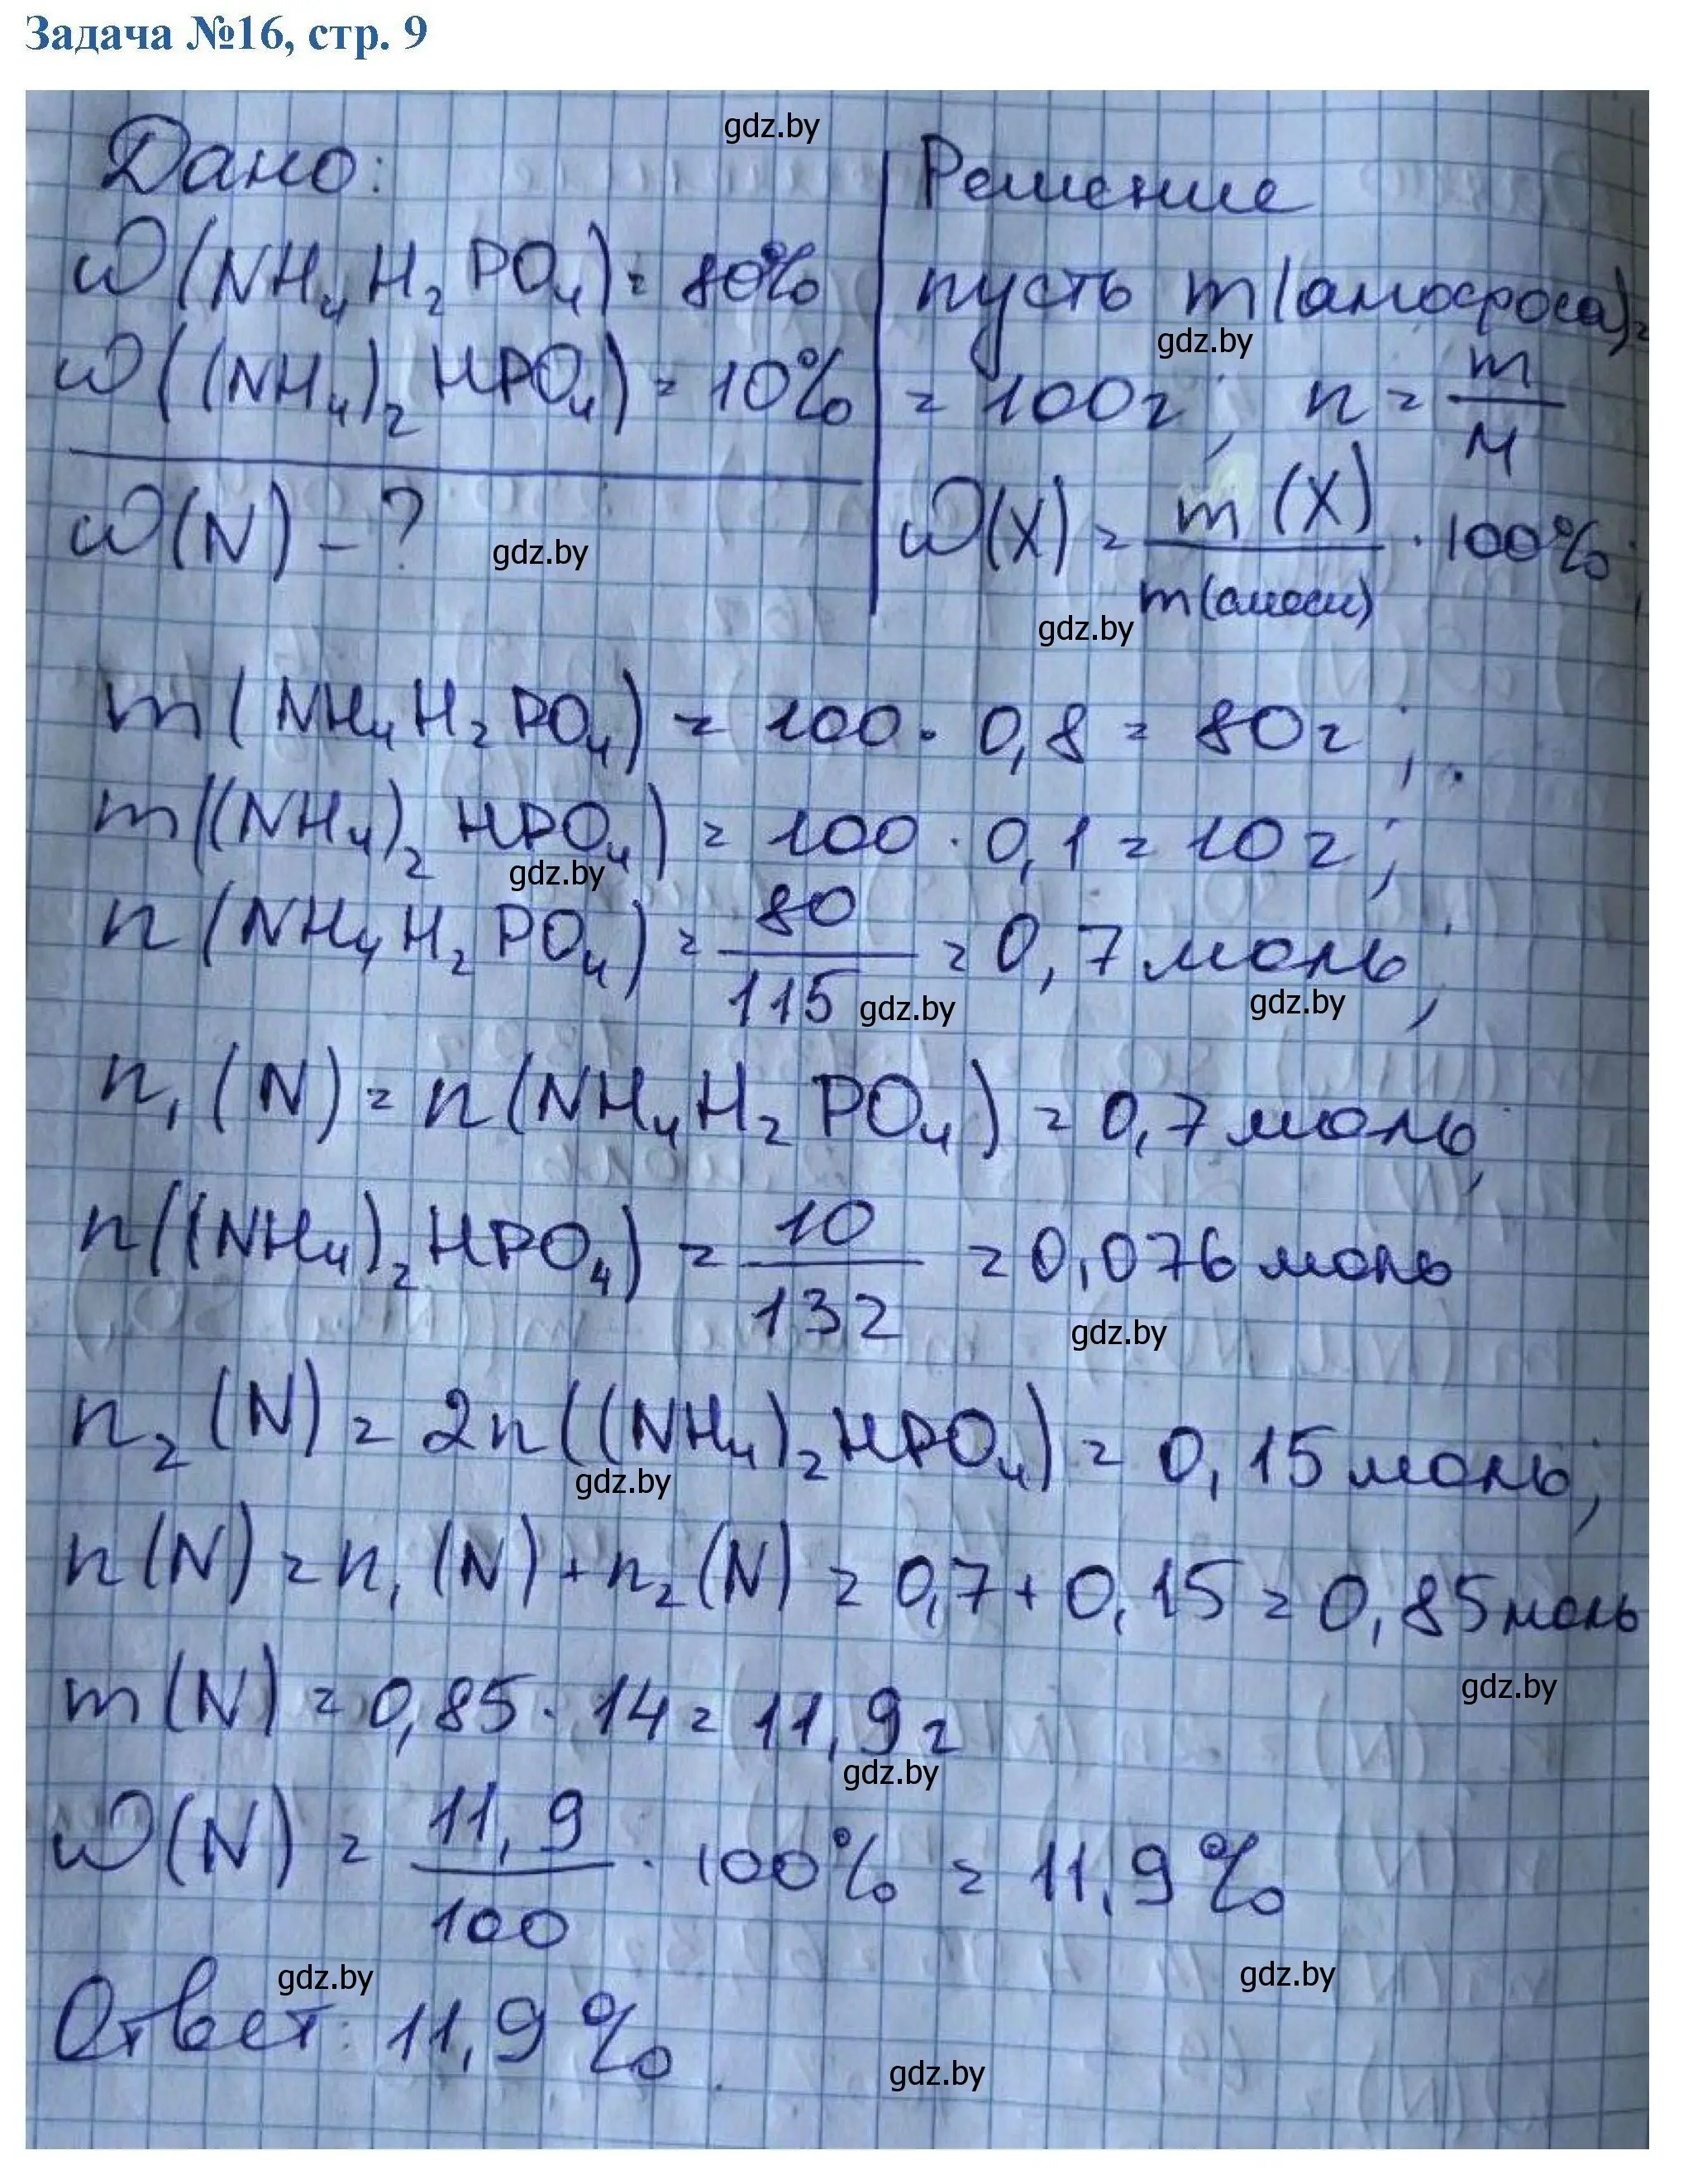 Задача №16, стр. 9
gdz.by
Дано:
Решение
ω(NH₄H₂PO₄) = 80%
пусть m(амофоса) =
gdz.by
ω((NH₄)₂HPO₄) = 10%
= 100г; n = m/M
ω(N) - ?
gdz.by
ω(X) = m(X)/m(смеси) · 100%;
gdz.by
m(NH₄H₂PO₄) = 100 · 0,8 = 80г;
m((NH₄)₂HPO₄) = 100 · 0,1 = 10г;
gdz.by
n(NH₄H₂PO₄) = 80/115 = 0,7 моль;
gdz.by
gdz.by
n₁(N) = n(NH₄H₂PO₄) = 0,7 моль;
n((NH₄)₂HPO₄) = 10/132 = 0,076 моль
gdz.by
n₂(N) = 2n((NH₄)₂HPO₄) = 0,15 моль;
gdz.by
n(N) = n₁(N) + n₂(N) = 0,7 + 0,15 = 0,85 моль
gdz.by
m(N) = 0,85 · 14 = 11,9г
gdz.by
ω(N) = 11,9/100 · 100% = 11,9%
gdz.by
gdz.by
Ответ: 11,9%.
gdz.by